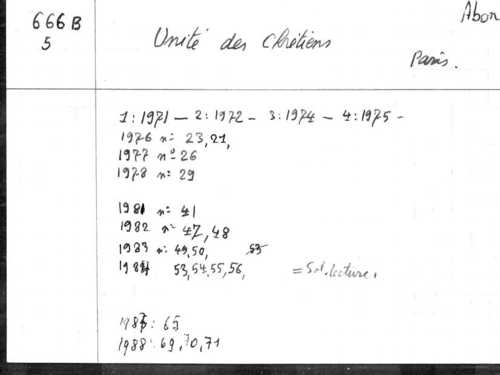 666B
Abon
5
Unité des Chrétiens
Paris.
1: 1971 — 2: 1972 - 3: 1974 - 4: 1975 -
1976 n: 23, 21,
1977 n° 26
1978 n: 29
1981 n: 41
1982 n: 47, 48
1983 n: 49, 50,
1984 53, 54, 55, 56, = Sal. lecture.
1987: 65
1988: 69, 70, 71